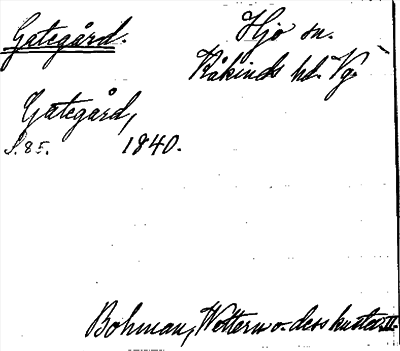 Gategård. Hjo sn.
Kåkinds hd. Vg.
Gategård,
S. 85. 1840.
Bohman, Wettern o. dess kuster. II.